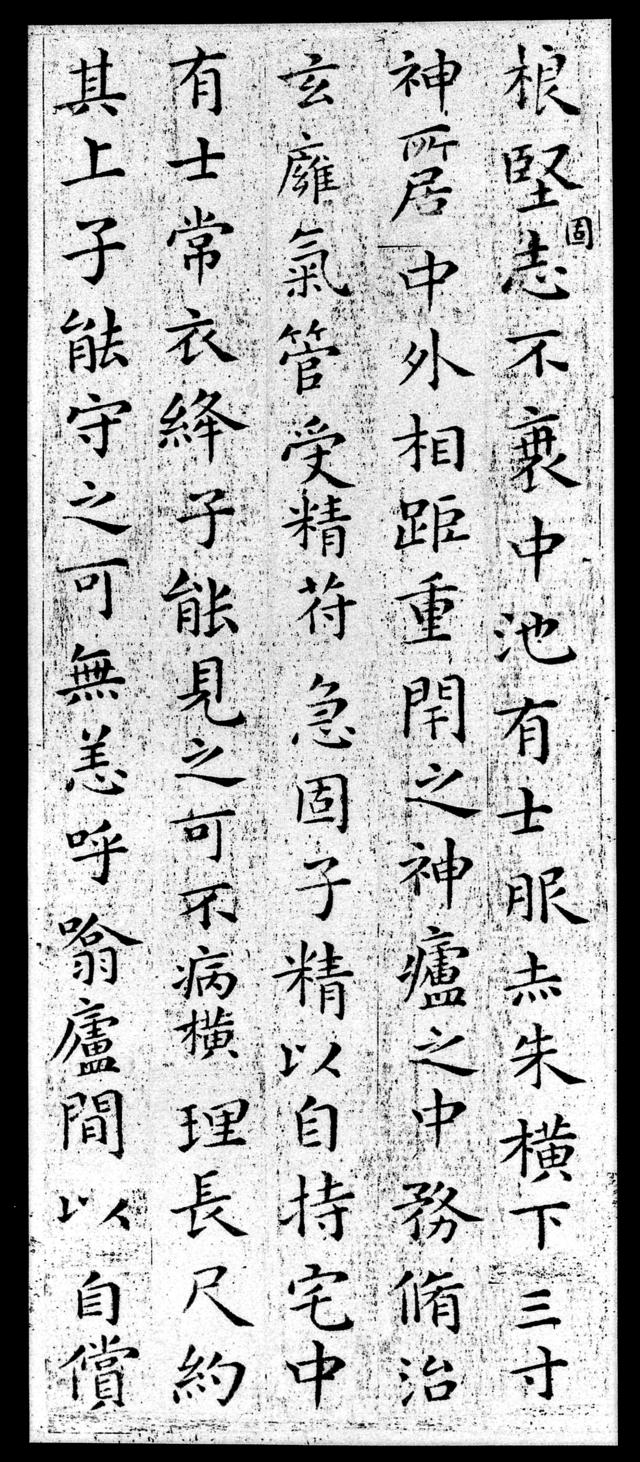 根堅固志不衰中池有士服赤朱横下三寸
神所居中外相距重閇之神廬之中務脩治
玄廱氣管受精苻急固子精以自持宅中
有士常衣絳子能見之可不病横理長尺約
其上子能守之可無恙呼噏廬間以自償